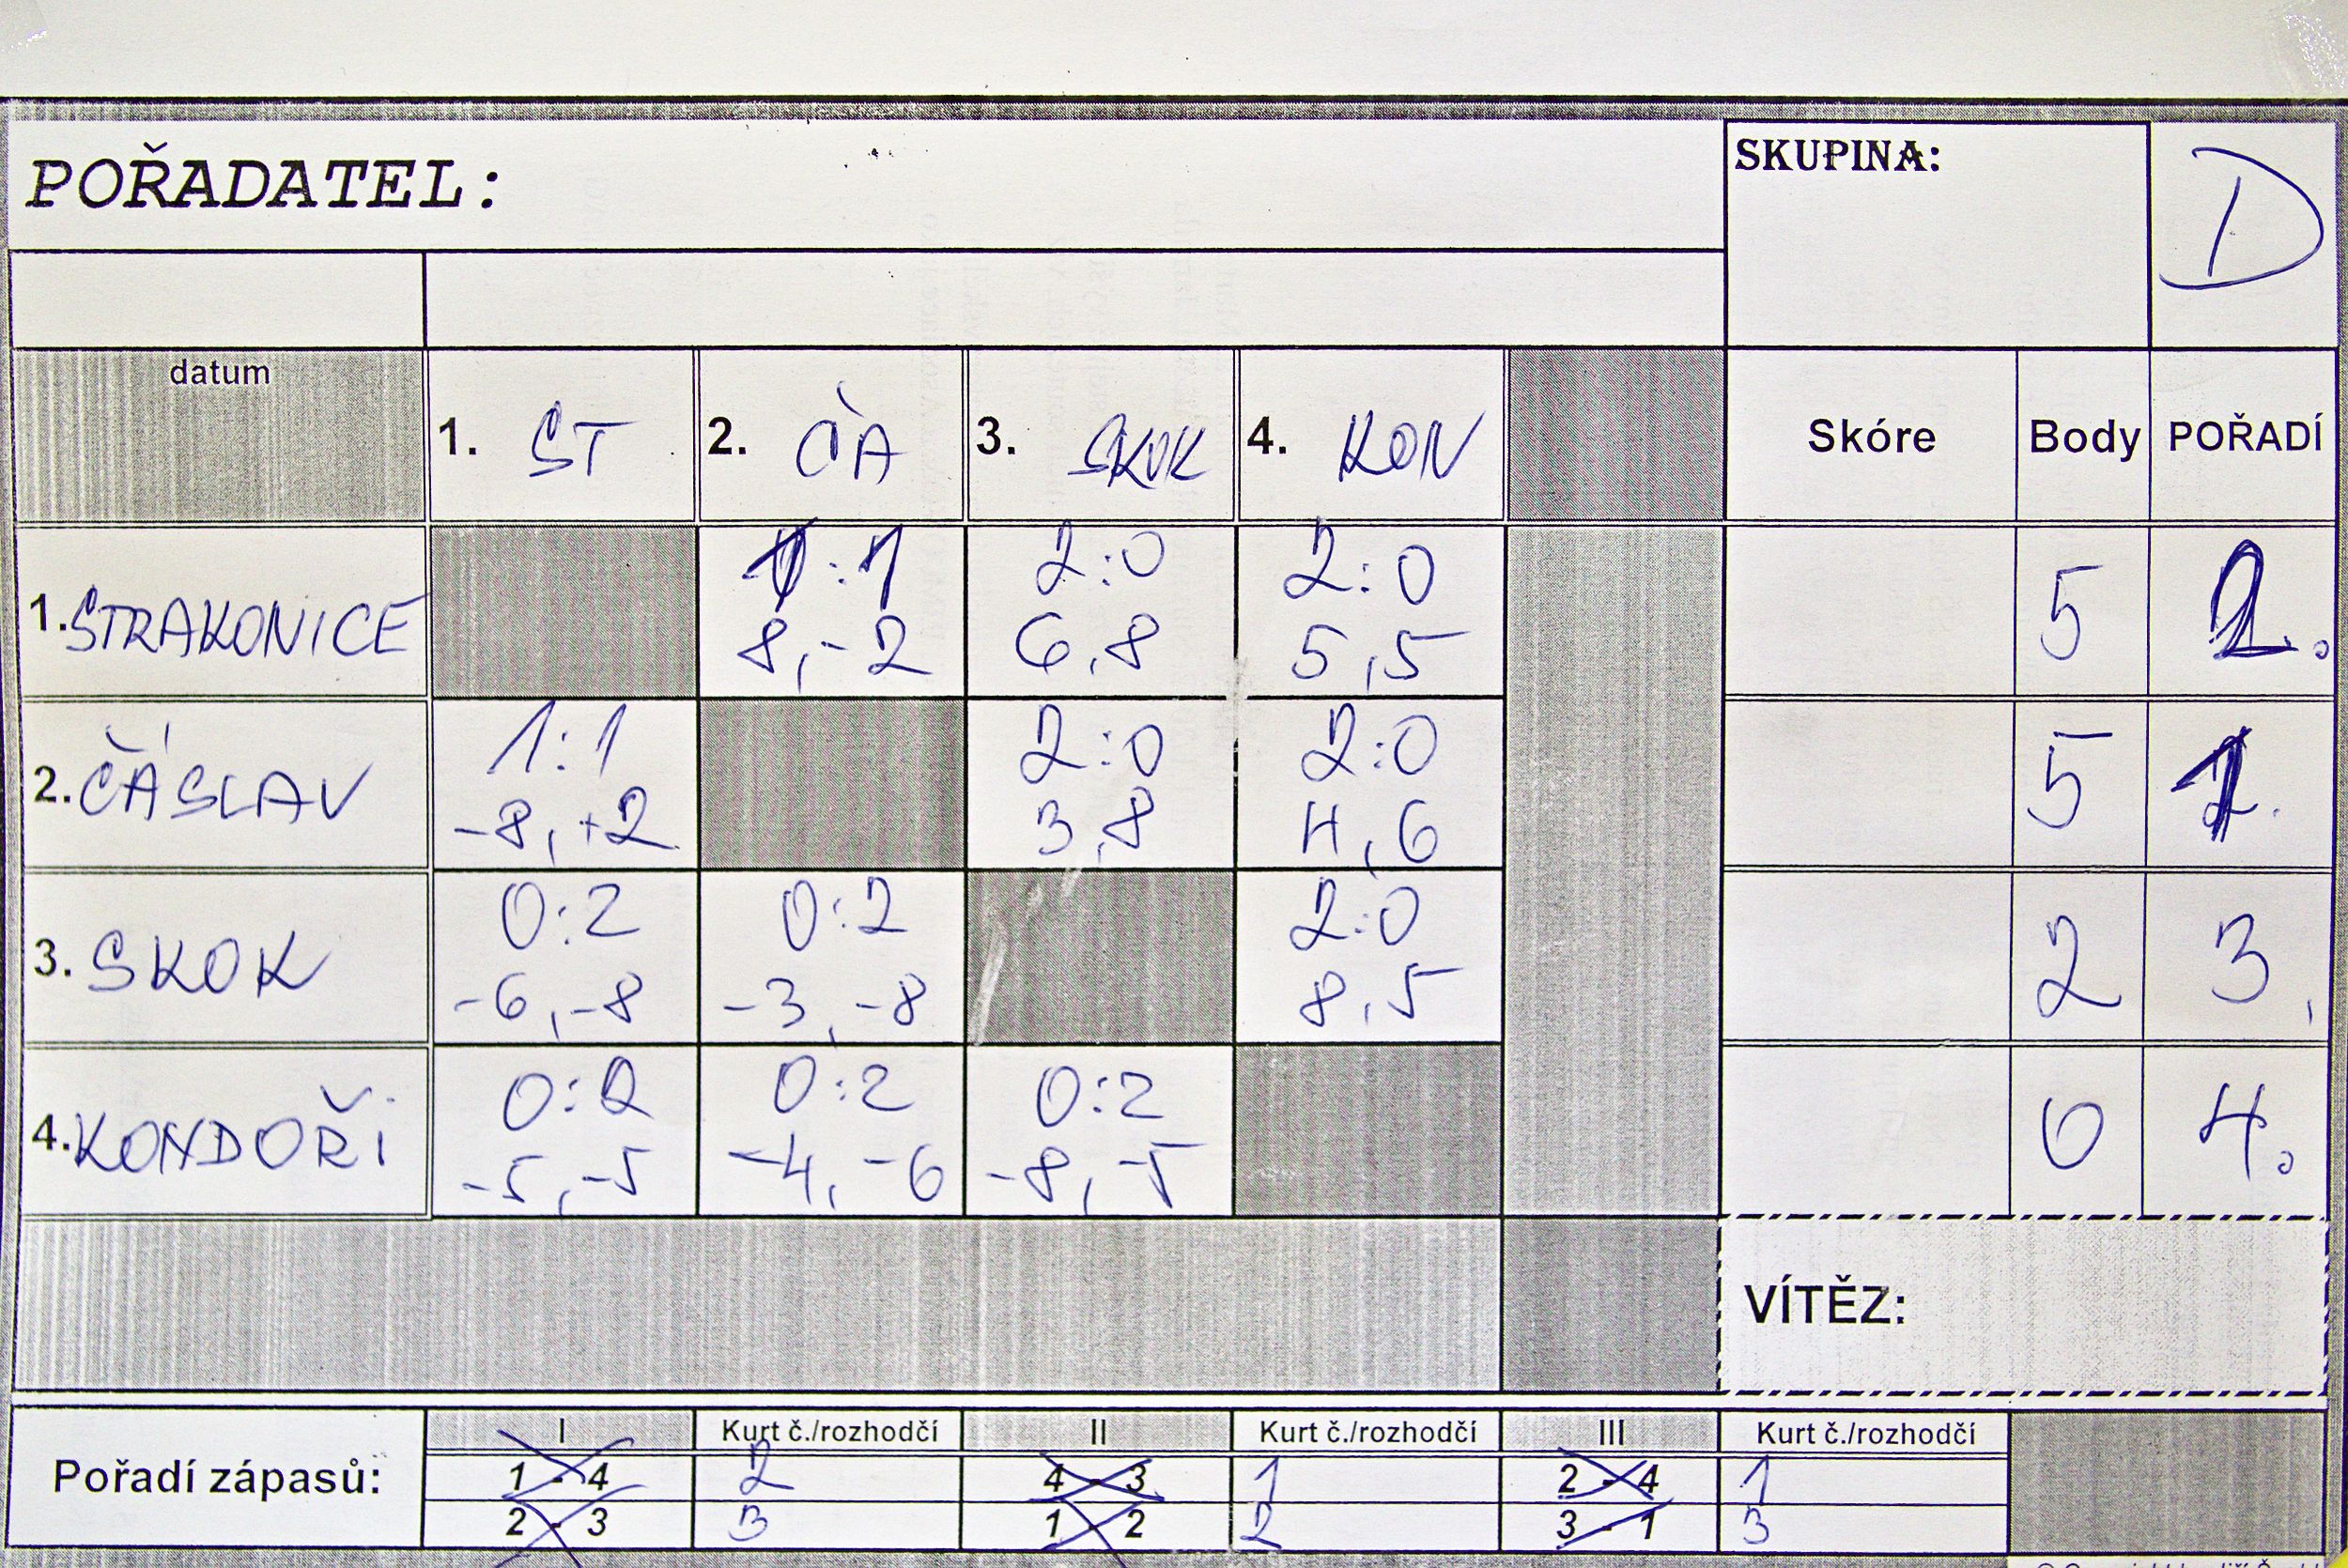 POŘADATEL:
SKUPINA: D
datum 1. ST 2. ČA 3. SKOK 4. KON Skóre Body POŘADÍ
1. STRAKONICE 1:1 2:0 2:0 5 2.
8,-2 6,8 5,5
2. ČÁSLAV 1:1 2:0 2:0 5 1.
-8,+2 3,8 4,6
3. SKOK 0:2 0:2 2:0 2 3.
-6,-8 -3,-8 8,5
4. KONDOŘI 0:2 0:2 0:2 0 4.
-5,-5 -4,-6 -8,-5
VÍTĚZ:
I Kurt č./rozhodčí II Kurt č./rozhodčí III Kurt č./rozhodčí
Pořadí zápasů: 1 - 4 2 4 - 3 1 2 - 4 1
2 - 3 3 1 - 2 2 3 - 1 3